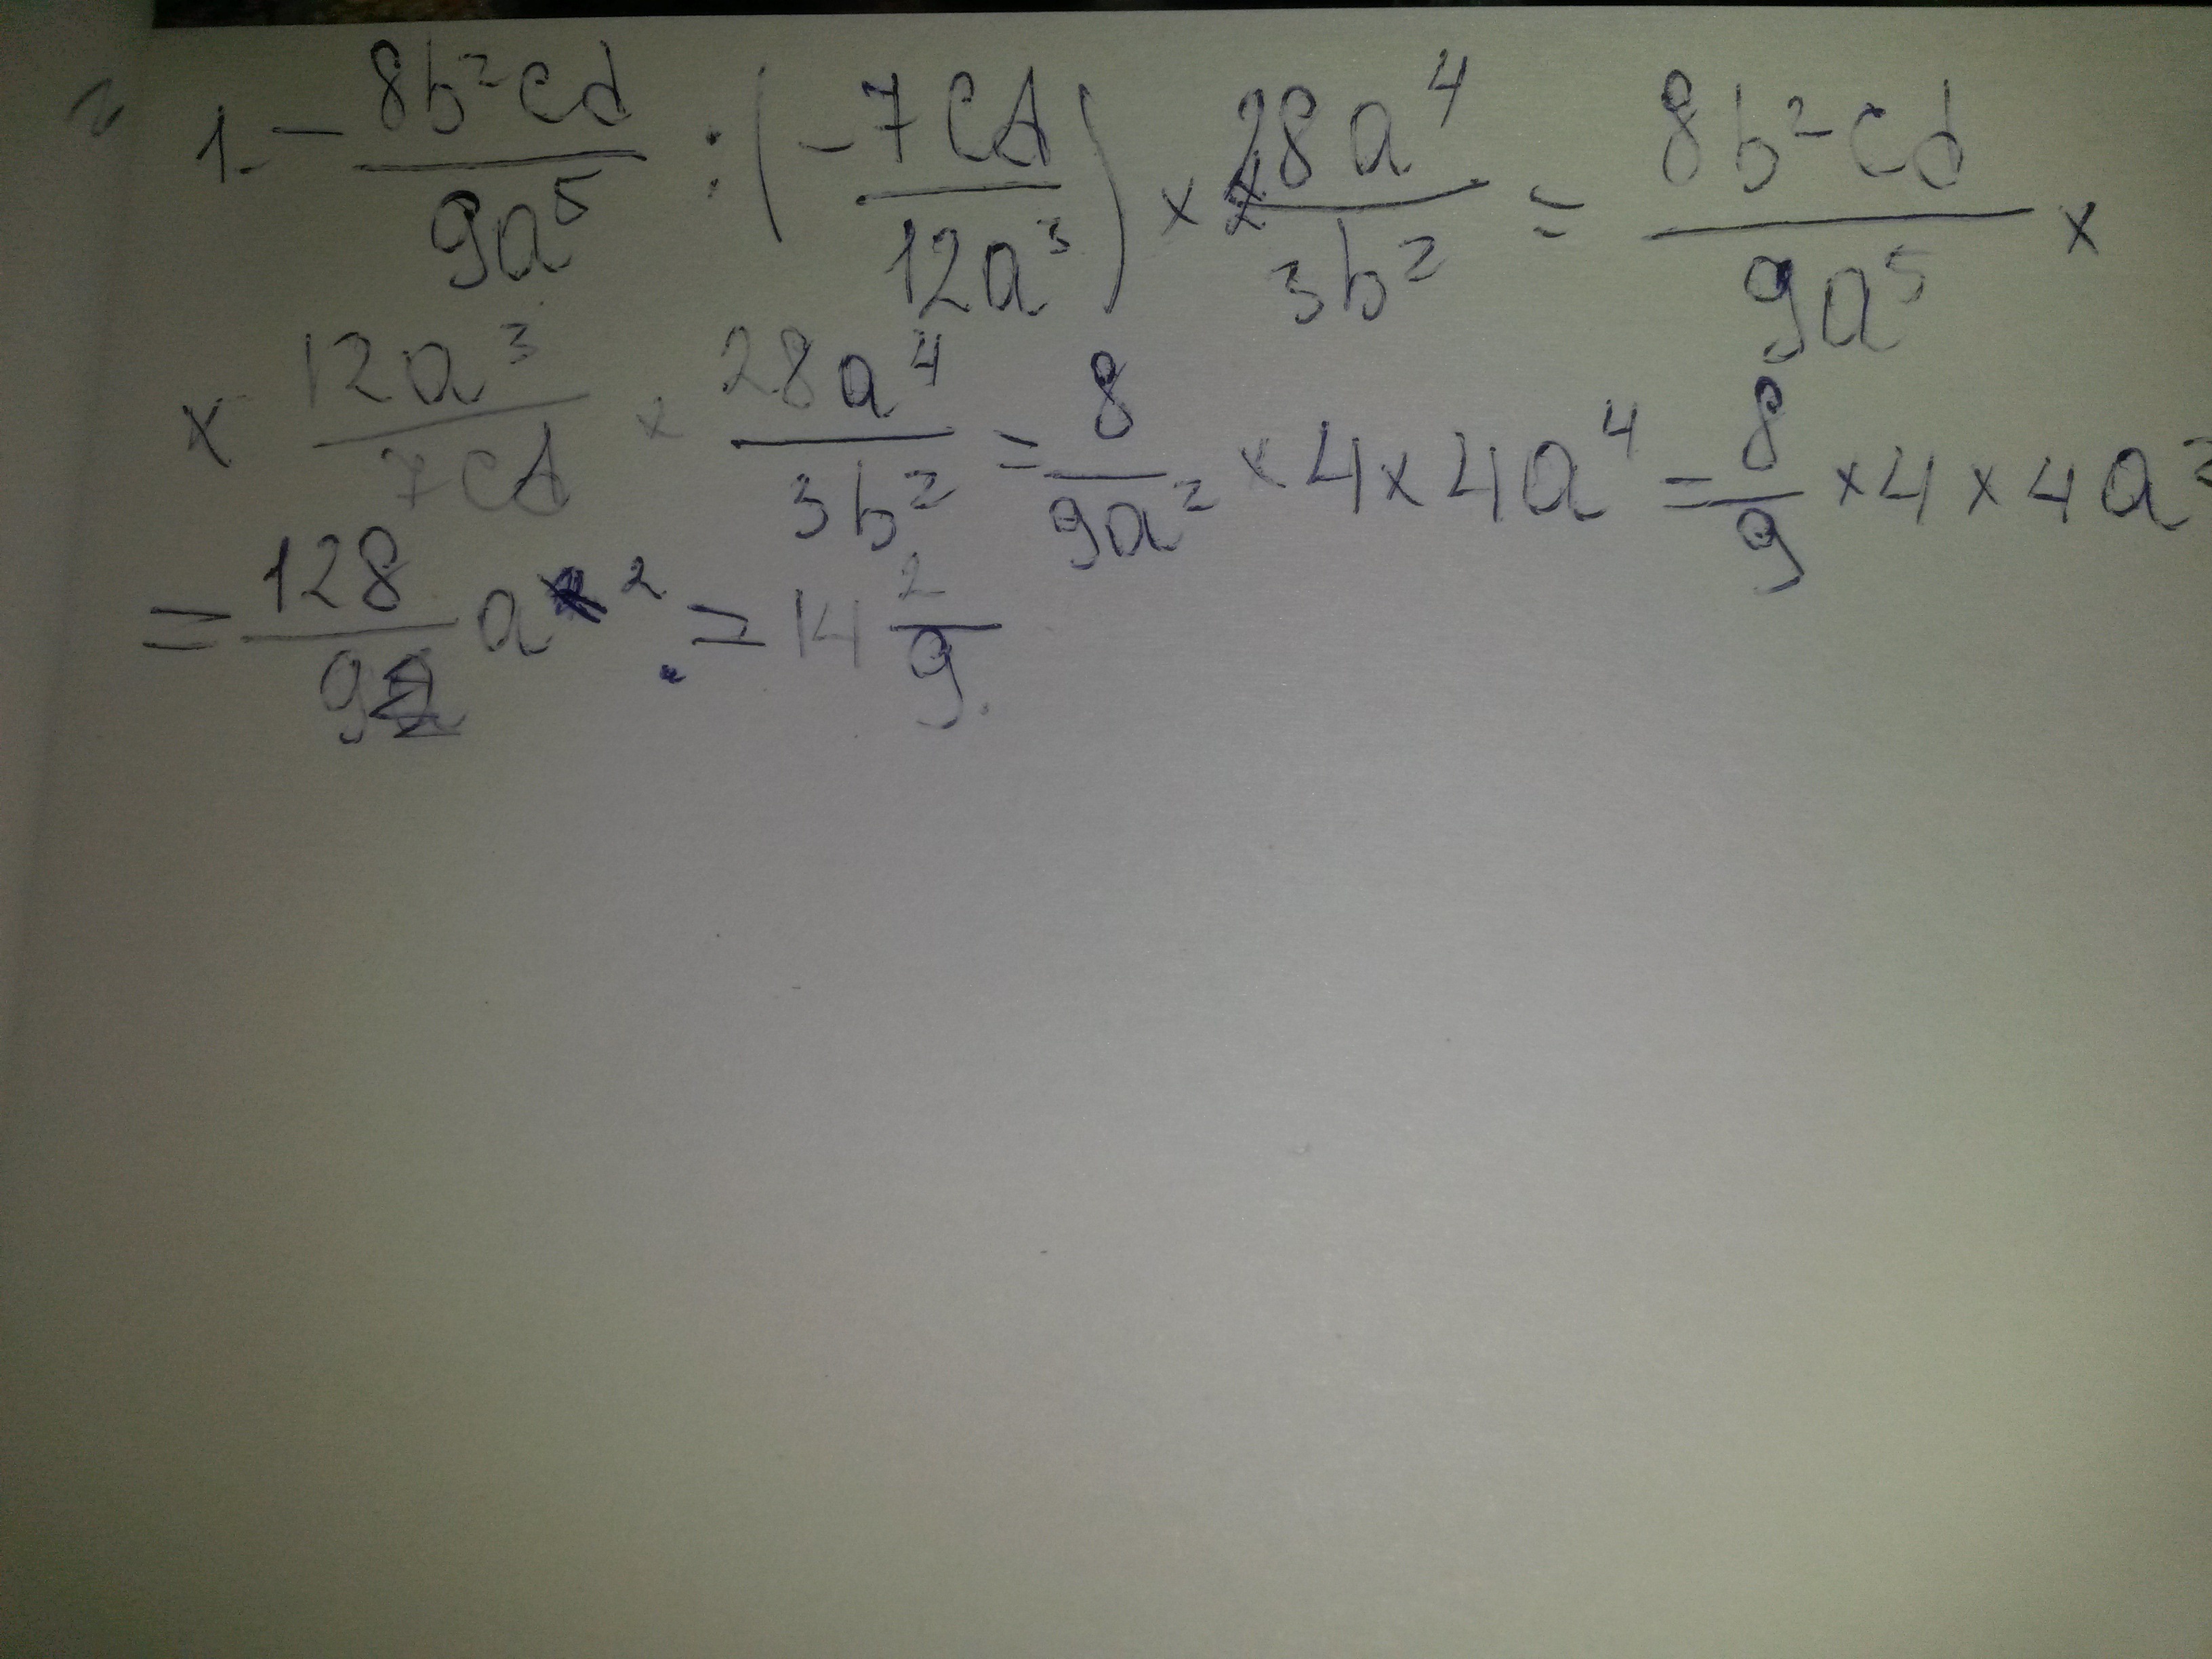 1. - 8b²cd / 9a⁵ : ( - 7cd / 12a³ ) × 28a⁴ / 3b² = 8b²cd / 9a⁵ ×
× 12a³ / 7cd × 28a⁴ / 3b² = 8 / 9a² × 4 × 4a⁴ = 8 / 9 × 4 × 4a²
= 128 / 9 a² . = 14 2/9.